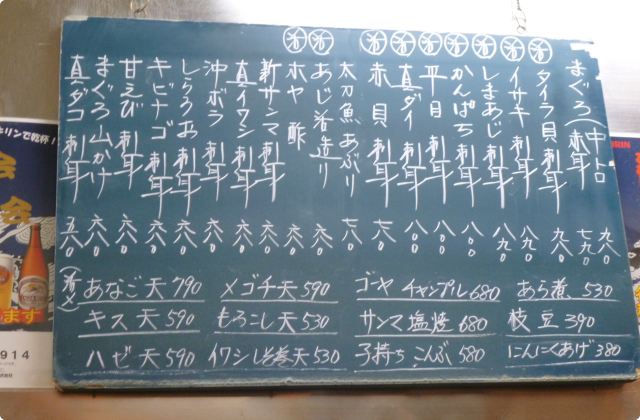 まぐろ(中トロ 九八〇
赤身 七九〇
活 タイラ貝 刺身 九八〇
活 イサキ 刺身 八九〇
活 しまあじ 刺身 八九〇
活 かんぱち 刺身 八〇〇
活 平目 刺身 八〇〇
活 真ダイ 刺身 八〇〇
活 赤貝 刺身 七八〇
太刀魚あぶり 七八〇
活 あじ活造り 六八〇
活 ホヤ酢 六八〇
新サンマ 刺身 六八〇
真イワシ 刺身 六八〇
沖ボラ 刺身 六八〇
しらうお 刺身 六八〇
キビナゴ 刺身 六八〇
甘えび 刺身 六八〇
まぐろ山かけ 六八〇
真ダコ 刺身 五八〇
あなご天 790
キス天 590
ハゼ天 590
メゴチ天 590
もろこし天 530
イワシ 天 530
ゴーヤ チャンプル 680
サンマ塩焼 680
子持ちこんぶ 580
あら煮 530
枝豆 390
にんにくあげ 380
キリンで乾杯!
会
会
ます
914